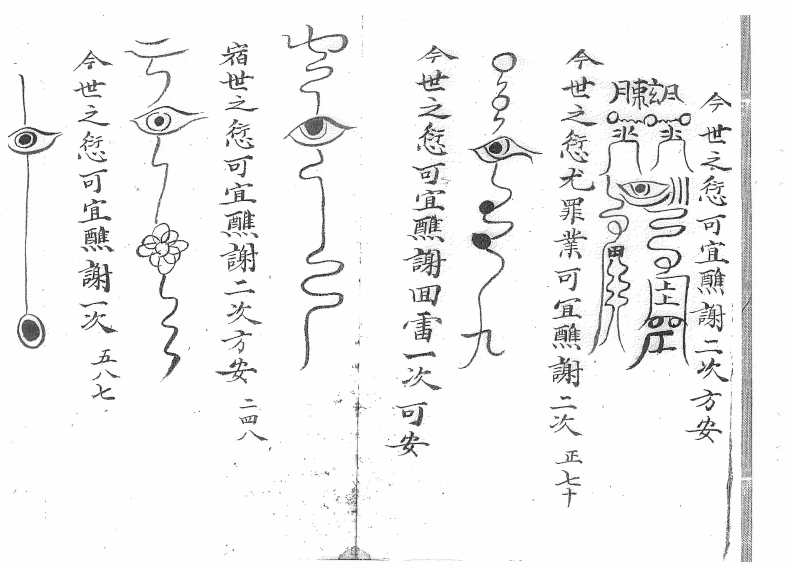 今世之愆可宜醮謝二次方安
今世之愆尤罪業可宜醮謝二次 正七十
今世之愆可宜醮謝回雷一次可安
宿世之愆可宜醮謝二次方安 二四八
今世之愆可宜醮謝一次 五八七